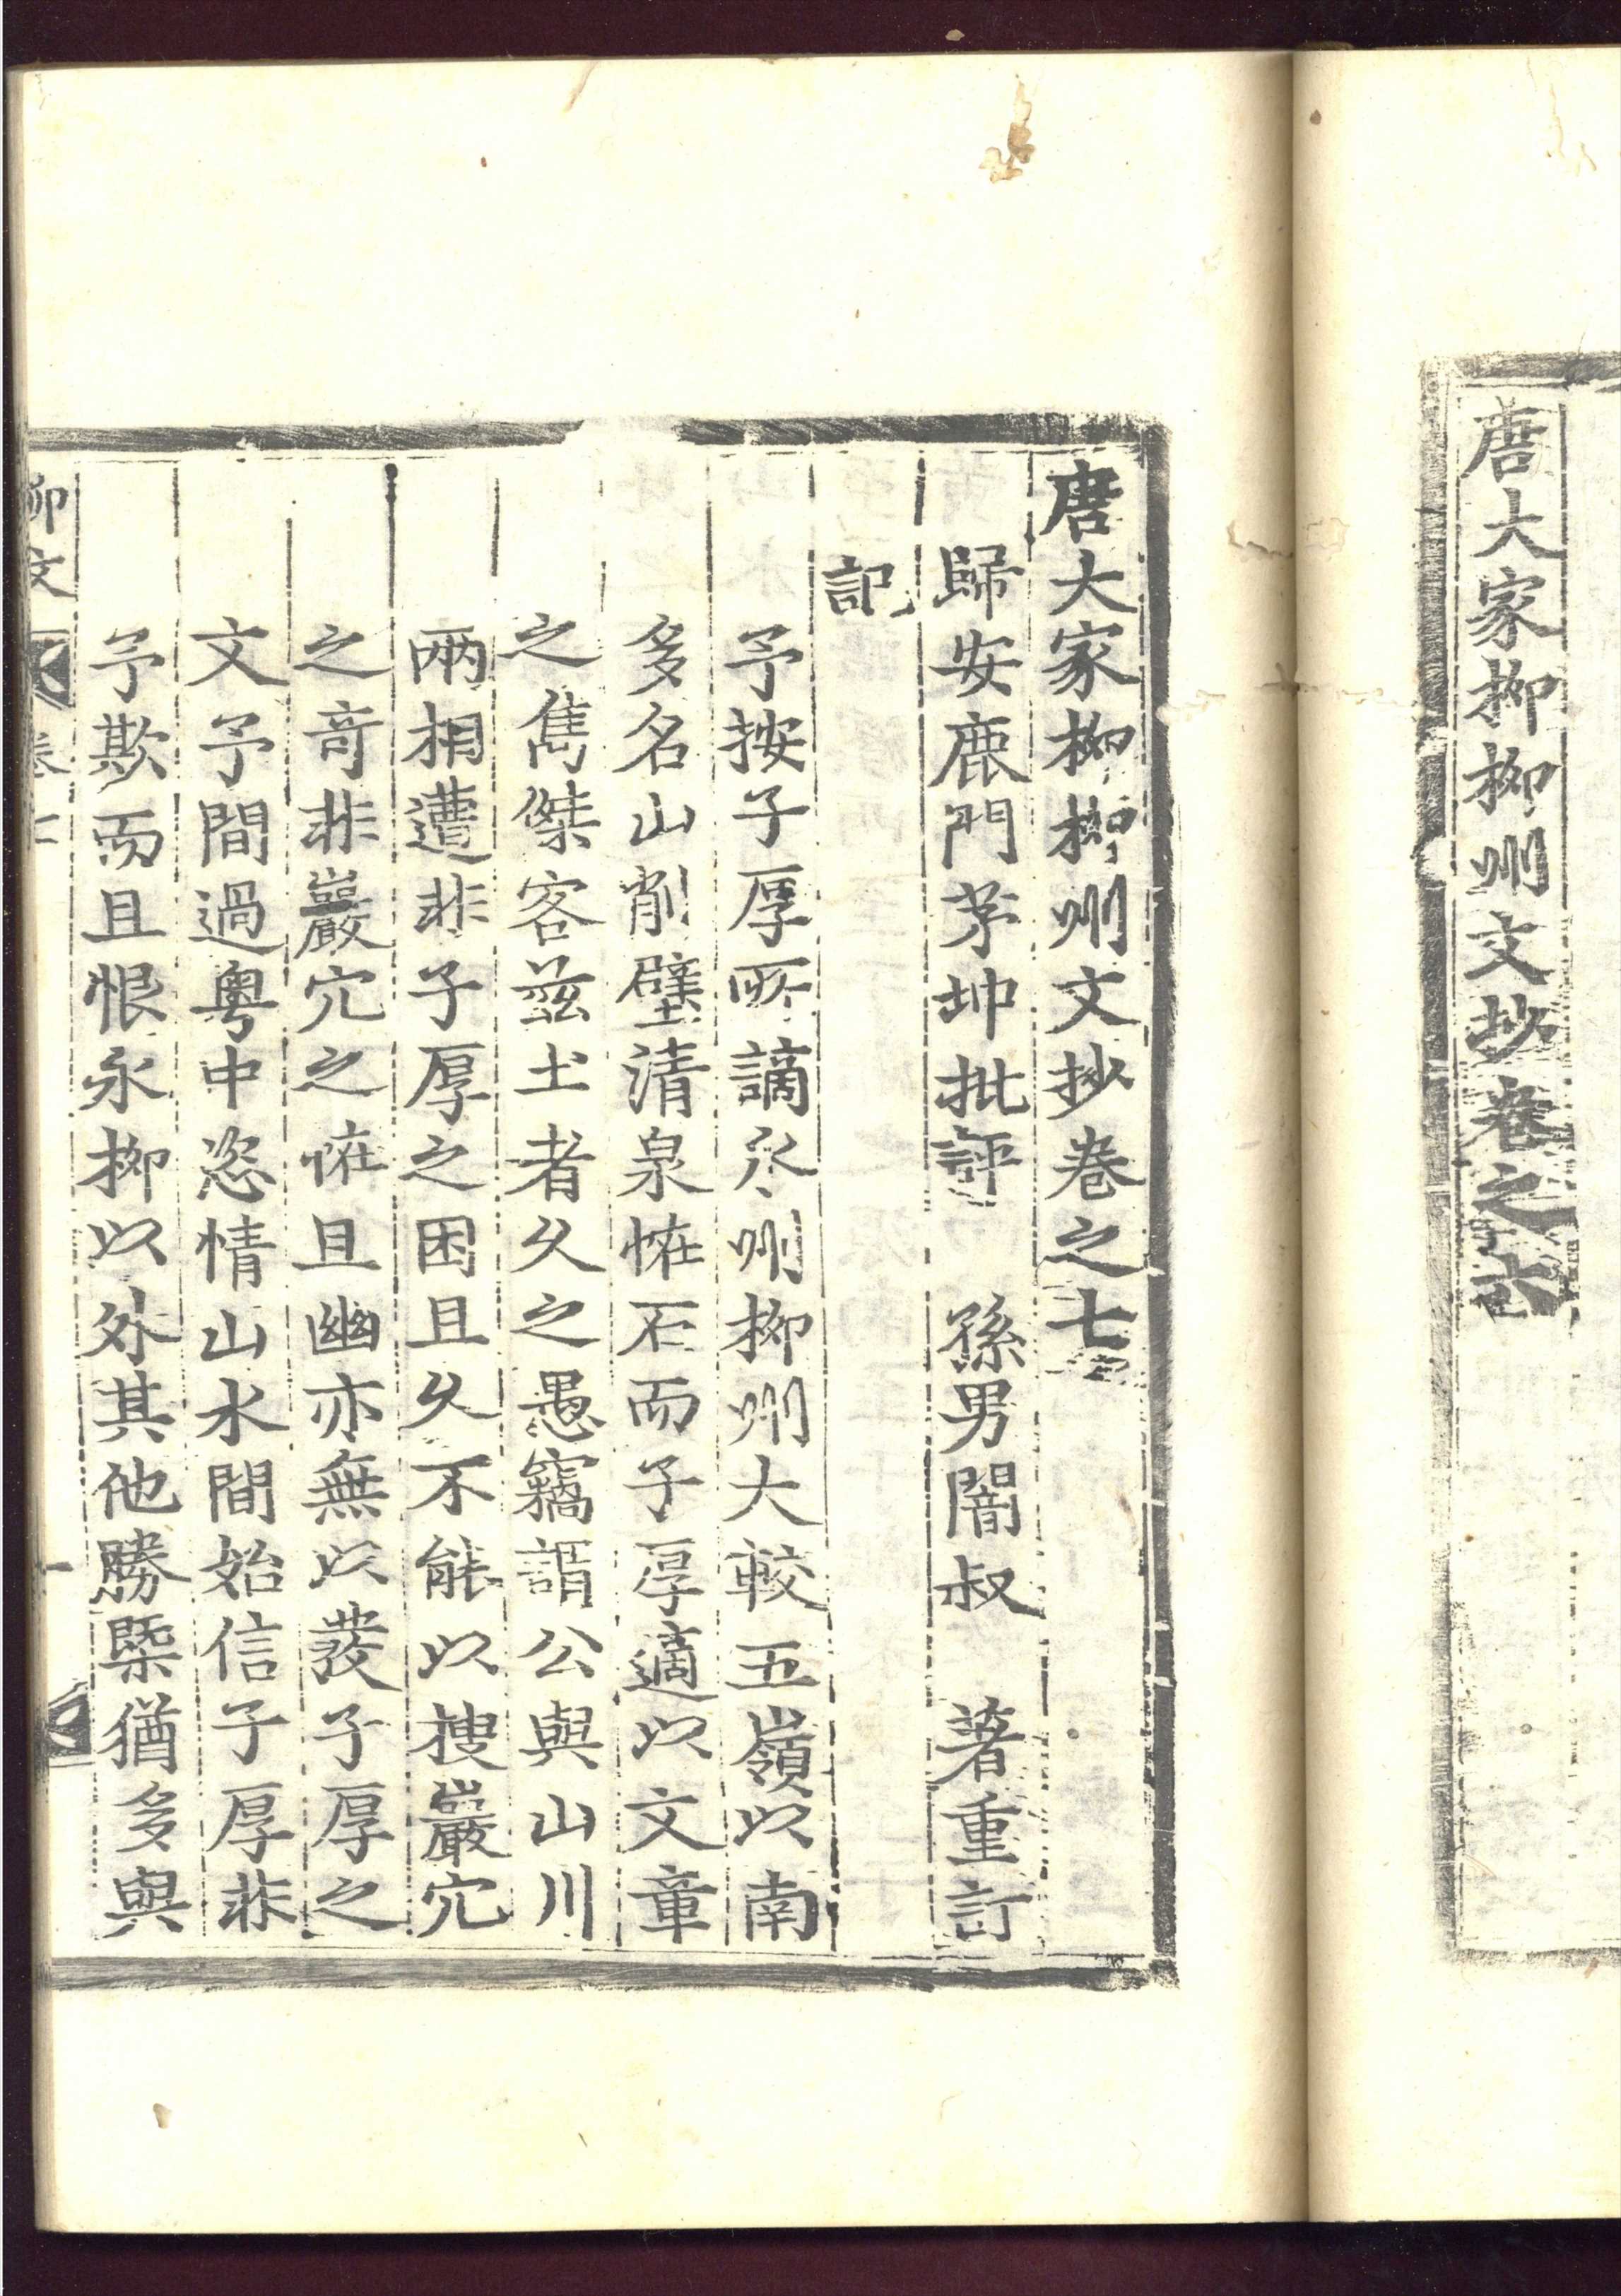 唐大家柳柳州文抄卷之六
唐大家柳柳州文抄卷之七
歸安鹿門茅坤批評　孫男闇叔　著重訂
記
予按子厚所謫永州柳州大較五嶺以南
多名山削壁清泉恠石而子厚適以文章
之雋傑客兹土者久之愚竊謂公與山川
兩相遭非子厚之困且久不能以搜巖穴
之竒非巖穴之恠且幽亦無以發子厚之
文予間過粤中恣情山水間始信子厚非
予欺而且恨永柳以外其他勝槩猶多與
柳文　卷七　一